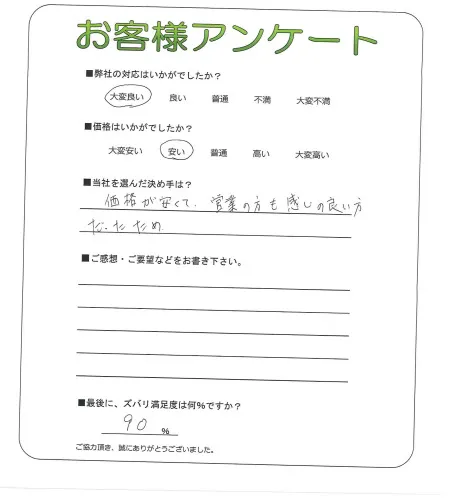 お客様アンケート
■弊社の対応はいかがでしたか？
大変良い 良い 普通 不満 大変不満
■価格はいかがでしたか？
大変安い 安い 普通 高い 大変高い
■当社を選んだ決め手は？
価格が安くて、営業の方も感じの良い方
だったため
■ご感想・ご要望などをお書き下さい。
■最後に、ズバリ満足度は何%ですか？
90 %
ご協力頂き、誠にありがとうございました。